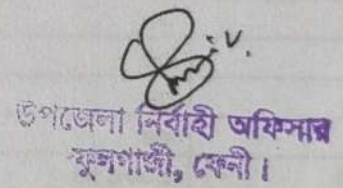 উপজেলা নির্বাহী অফিসার
ফুলগাজী, ফেনী।